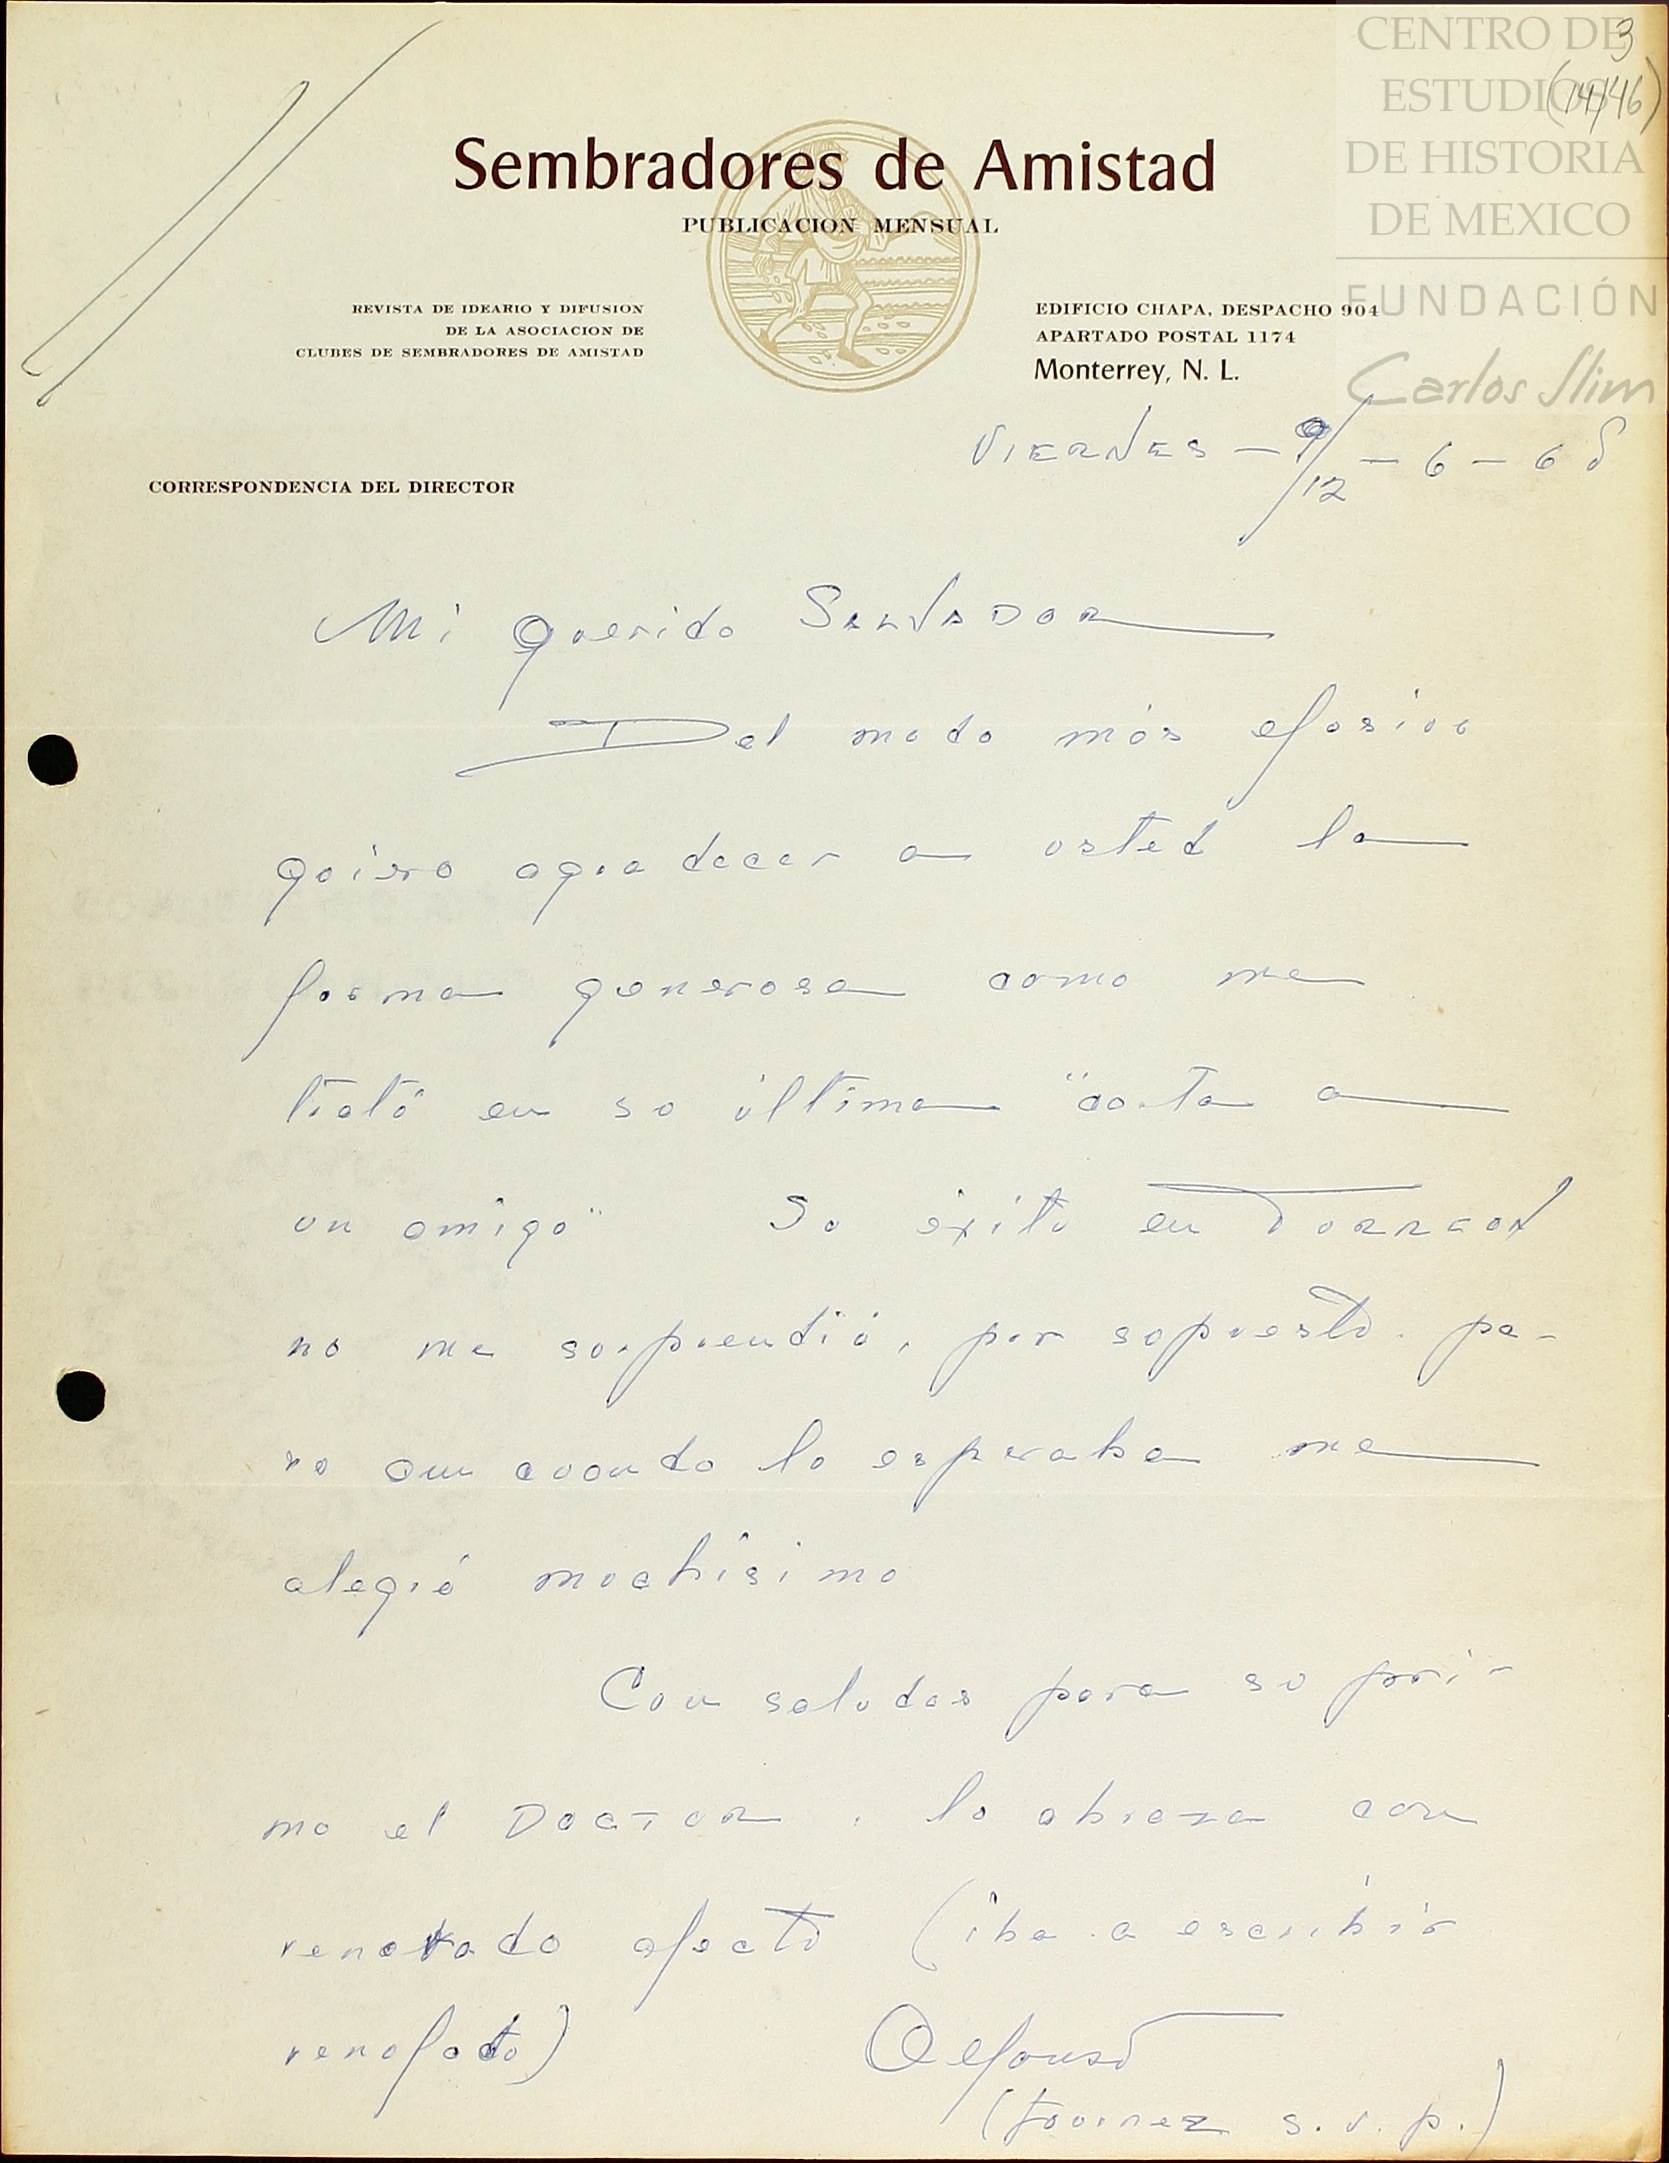 CENTRO DE
ESTUDIOS
DE HISTORIA
DE MEXICO
FUNDACIÓN
Carlos Slim
3
(14/46)
Sembradores de Amistad
PUBLICACION MENSUAL
REVISTA DE IDEARIO Y DIFUSION
DE LA ASOCIACION DE
CLUBES DE SEMBRADORES DE AMISTAD
EDIFICIO CHAPA, DESPACHO 904
APARTADO POSTAL 1174
Monterrey, N. L.
CORRESPONDENCIA DEL DIRECTOR
VIERNES - 9/12 - 6 - 68
Mi querido SALVADOR
Del modo más efusivo
quiero agradecer a usted la
forma generosa como me
trató en su última "carta a
un amigo" Su éxito en TORREON
no me sorprendió, por supuesto. pe-
ro aun cuando lo esperaba me
alegró muchísimo
Con saludos para su pri-
mo el DOCTOR, lo abraza con
renovado afecto (iba a escribir
renofato)
Alfonso
(s. v. p.)